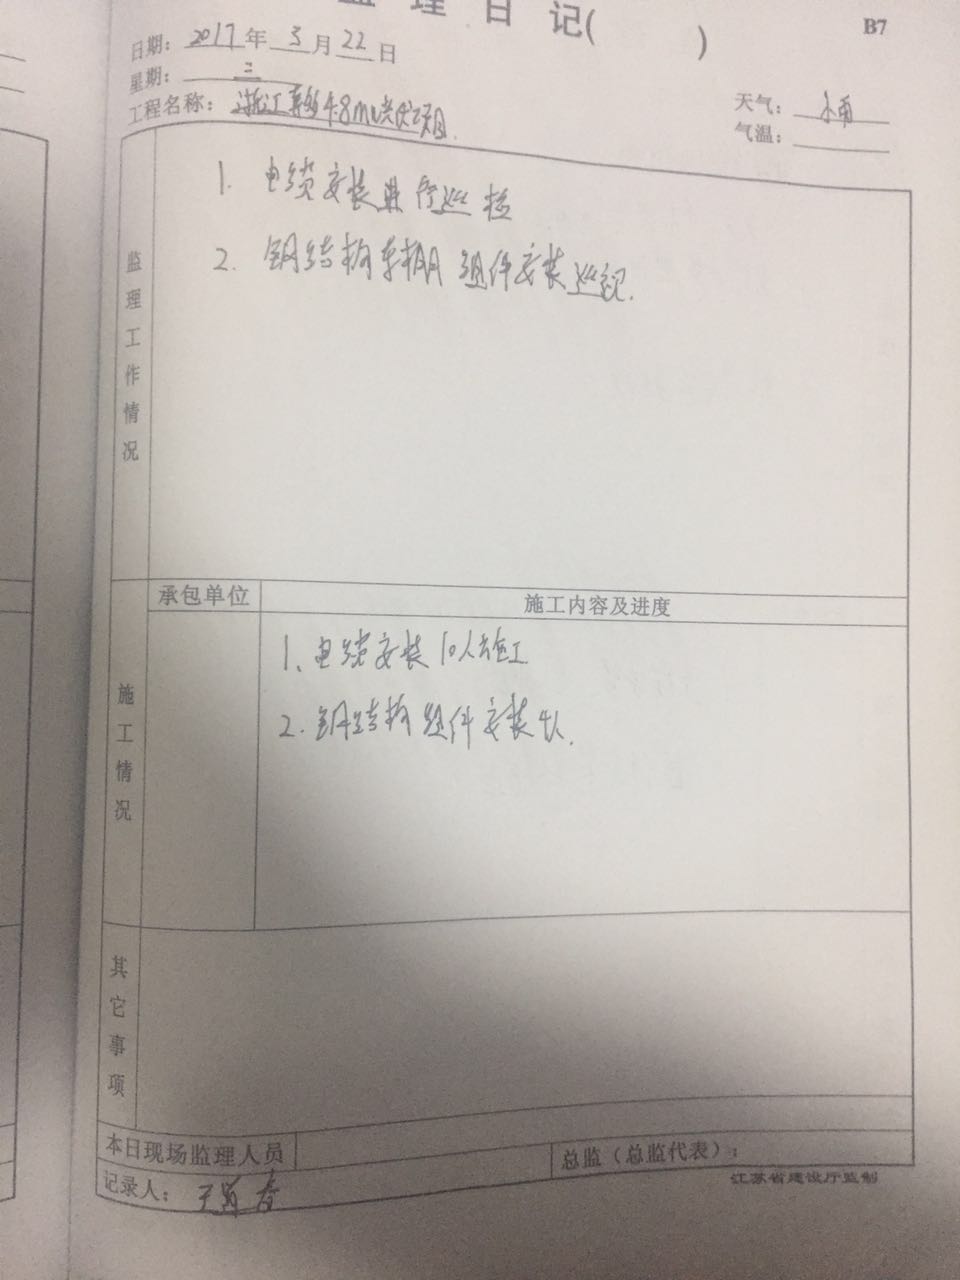 监理日记( )
B7
日期：2017年3月22日
星期：三
工程名称：浙江 4.8MW光伏项目
天气：小雨
气温：
监理工作情况
1. 电缆安装进行巡检
2. 钢结构车棚组件安装巡视.
承包单位
施工内容及进度
施工情况
1、电缆安装10人施工
2. 钢结构组件安装 人.
其它事项
本日现场监理人员
总监（总监代表）：
记录人：
江苏省建设厅监制